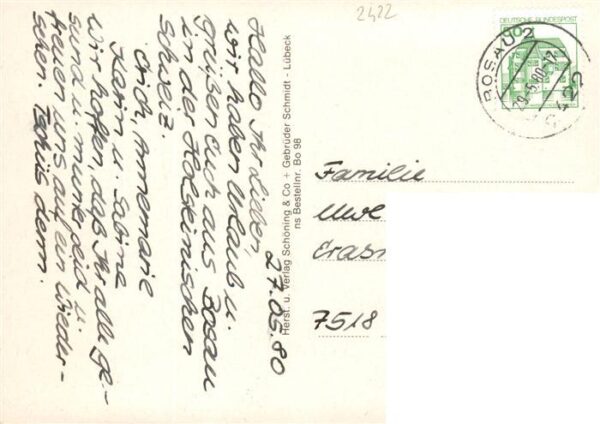 2422
DEUTSCHE BUNDESPOST
BOSAU 2
29.-5.80-17
2422
27.05.80
Hallo Ihr Lieben,
wir haben Urlaub u.
grüßen Euch aus Bosau
in der Holsteinischen
Schweiz.
Erich, Annemarie
Karin u. Sabine
Wir hoffen, daß Ihr alle ge-
sund u. munter seid u.
freuen uns auf ein Wieder-
sehen. Tschüs denn.
Herst. u. Verlag Schöning & Co + Gebrüder Schmidt - Lübeck
ns Bestellnr. Bo 98
Familie
Uwe
Eras
7518